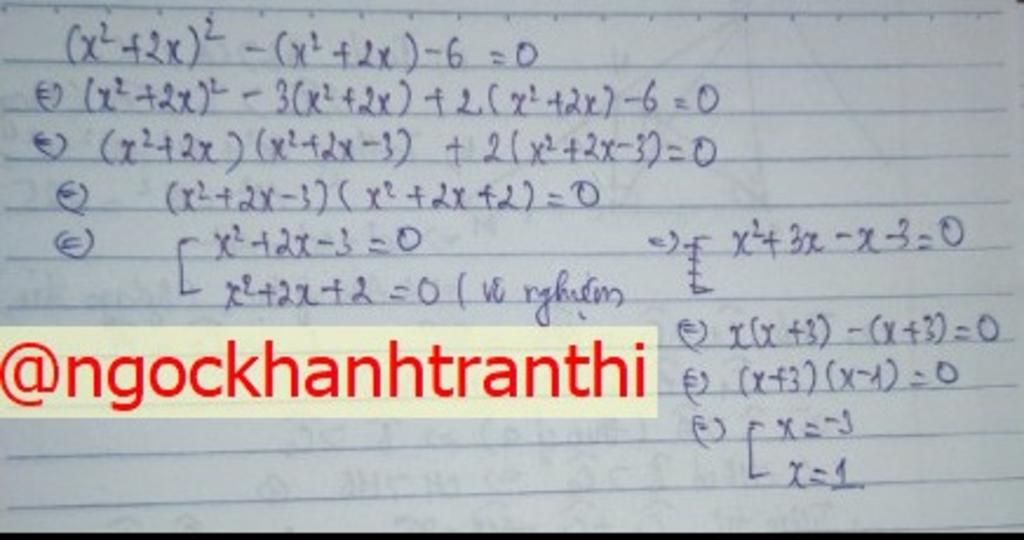 (x²+2x)² -(x²+2x)-6 =0
⇔ (x²+2x)² - 3(x²+2x) + 2(x²+2x)-6=0
⇔ (x²+2x)(x²+2x-3) + 2(x²+2x-3)=0
⇔ (x²+2x-3)(x²+2x+2)=0
⇔ [ x²+2x-3=0
x²+2x+2=0 (vô nghiệm
⇔ [ x²+3x-x-3=0
⇔ x(x+3) -(x+3)=0
⇔ (x+3)(x-1)=0
⇔ [ x=-3
x=1
@ngockhanhtranthi